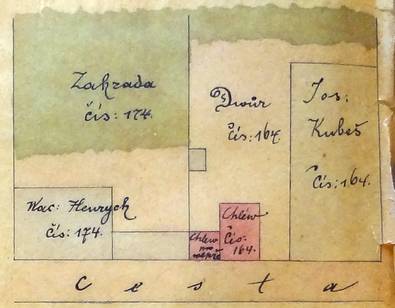 Zahrada
čís: 174.
Dwůr
Čís: 164
Jos:
Kubeš
Čís: 164.
Wac: Henrych
čís: 174.
Chlew
pro
wepře
Chléw
Čís:
164.
Cesta